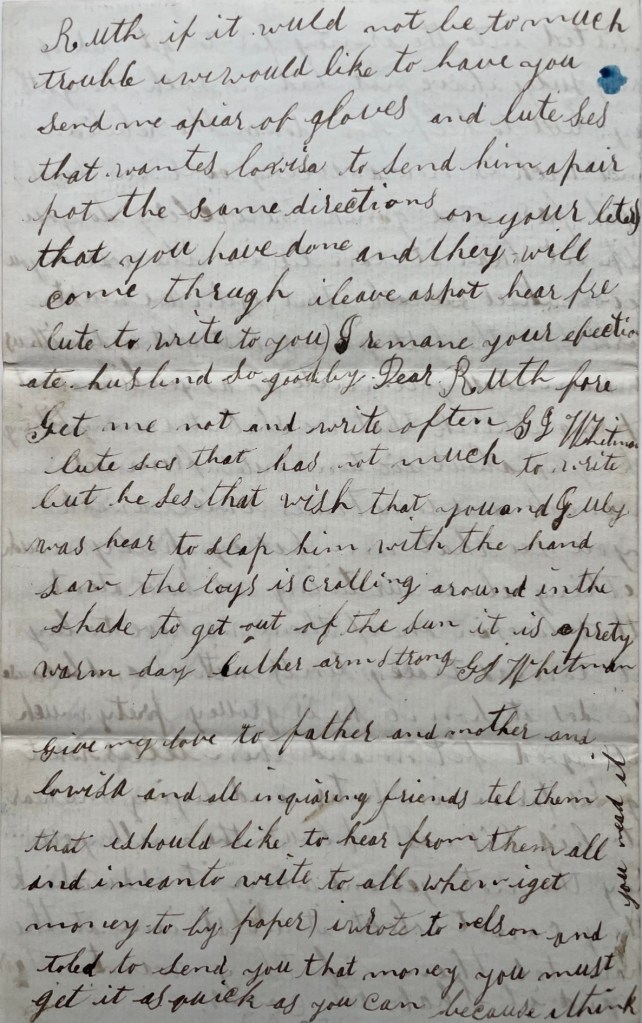 Ruth if it wuld not be to much
trouble i we would like to have you
send me apiar of gloves and lute ses
that wantes lowisa to send him apair
pot the same directions on your leters
that you have done and they will
come thrugh i leave aspot hear fre
lute to write to you) I remane your efectin
ate husbnd so goodby Dear Ruth fore
Get me not and write often G J Whitman
lute ses that has not much to write
but he ses that wish that you and
was hear to slap him with the hand
saw the boys is cralling around in the
shade to get out of the sun it is aprety
warm day Luther armstrong G J Whitman
Give my love to father and mother and
lowisa and all inquiaring friends tel them
that i should like to hear from them all
and i mean to write to all when i get
money to by paper) i wrote to nelson and
toled to send you that money you must
get it as quick as you can because i think
you nead it